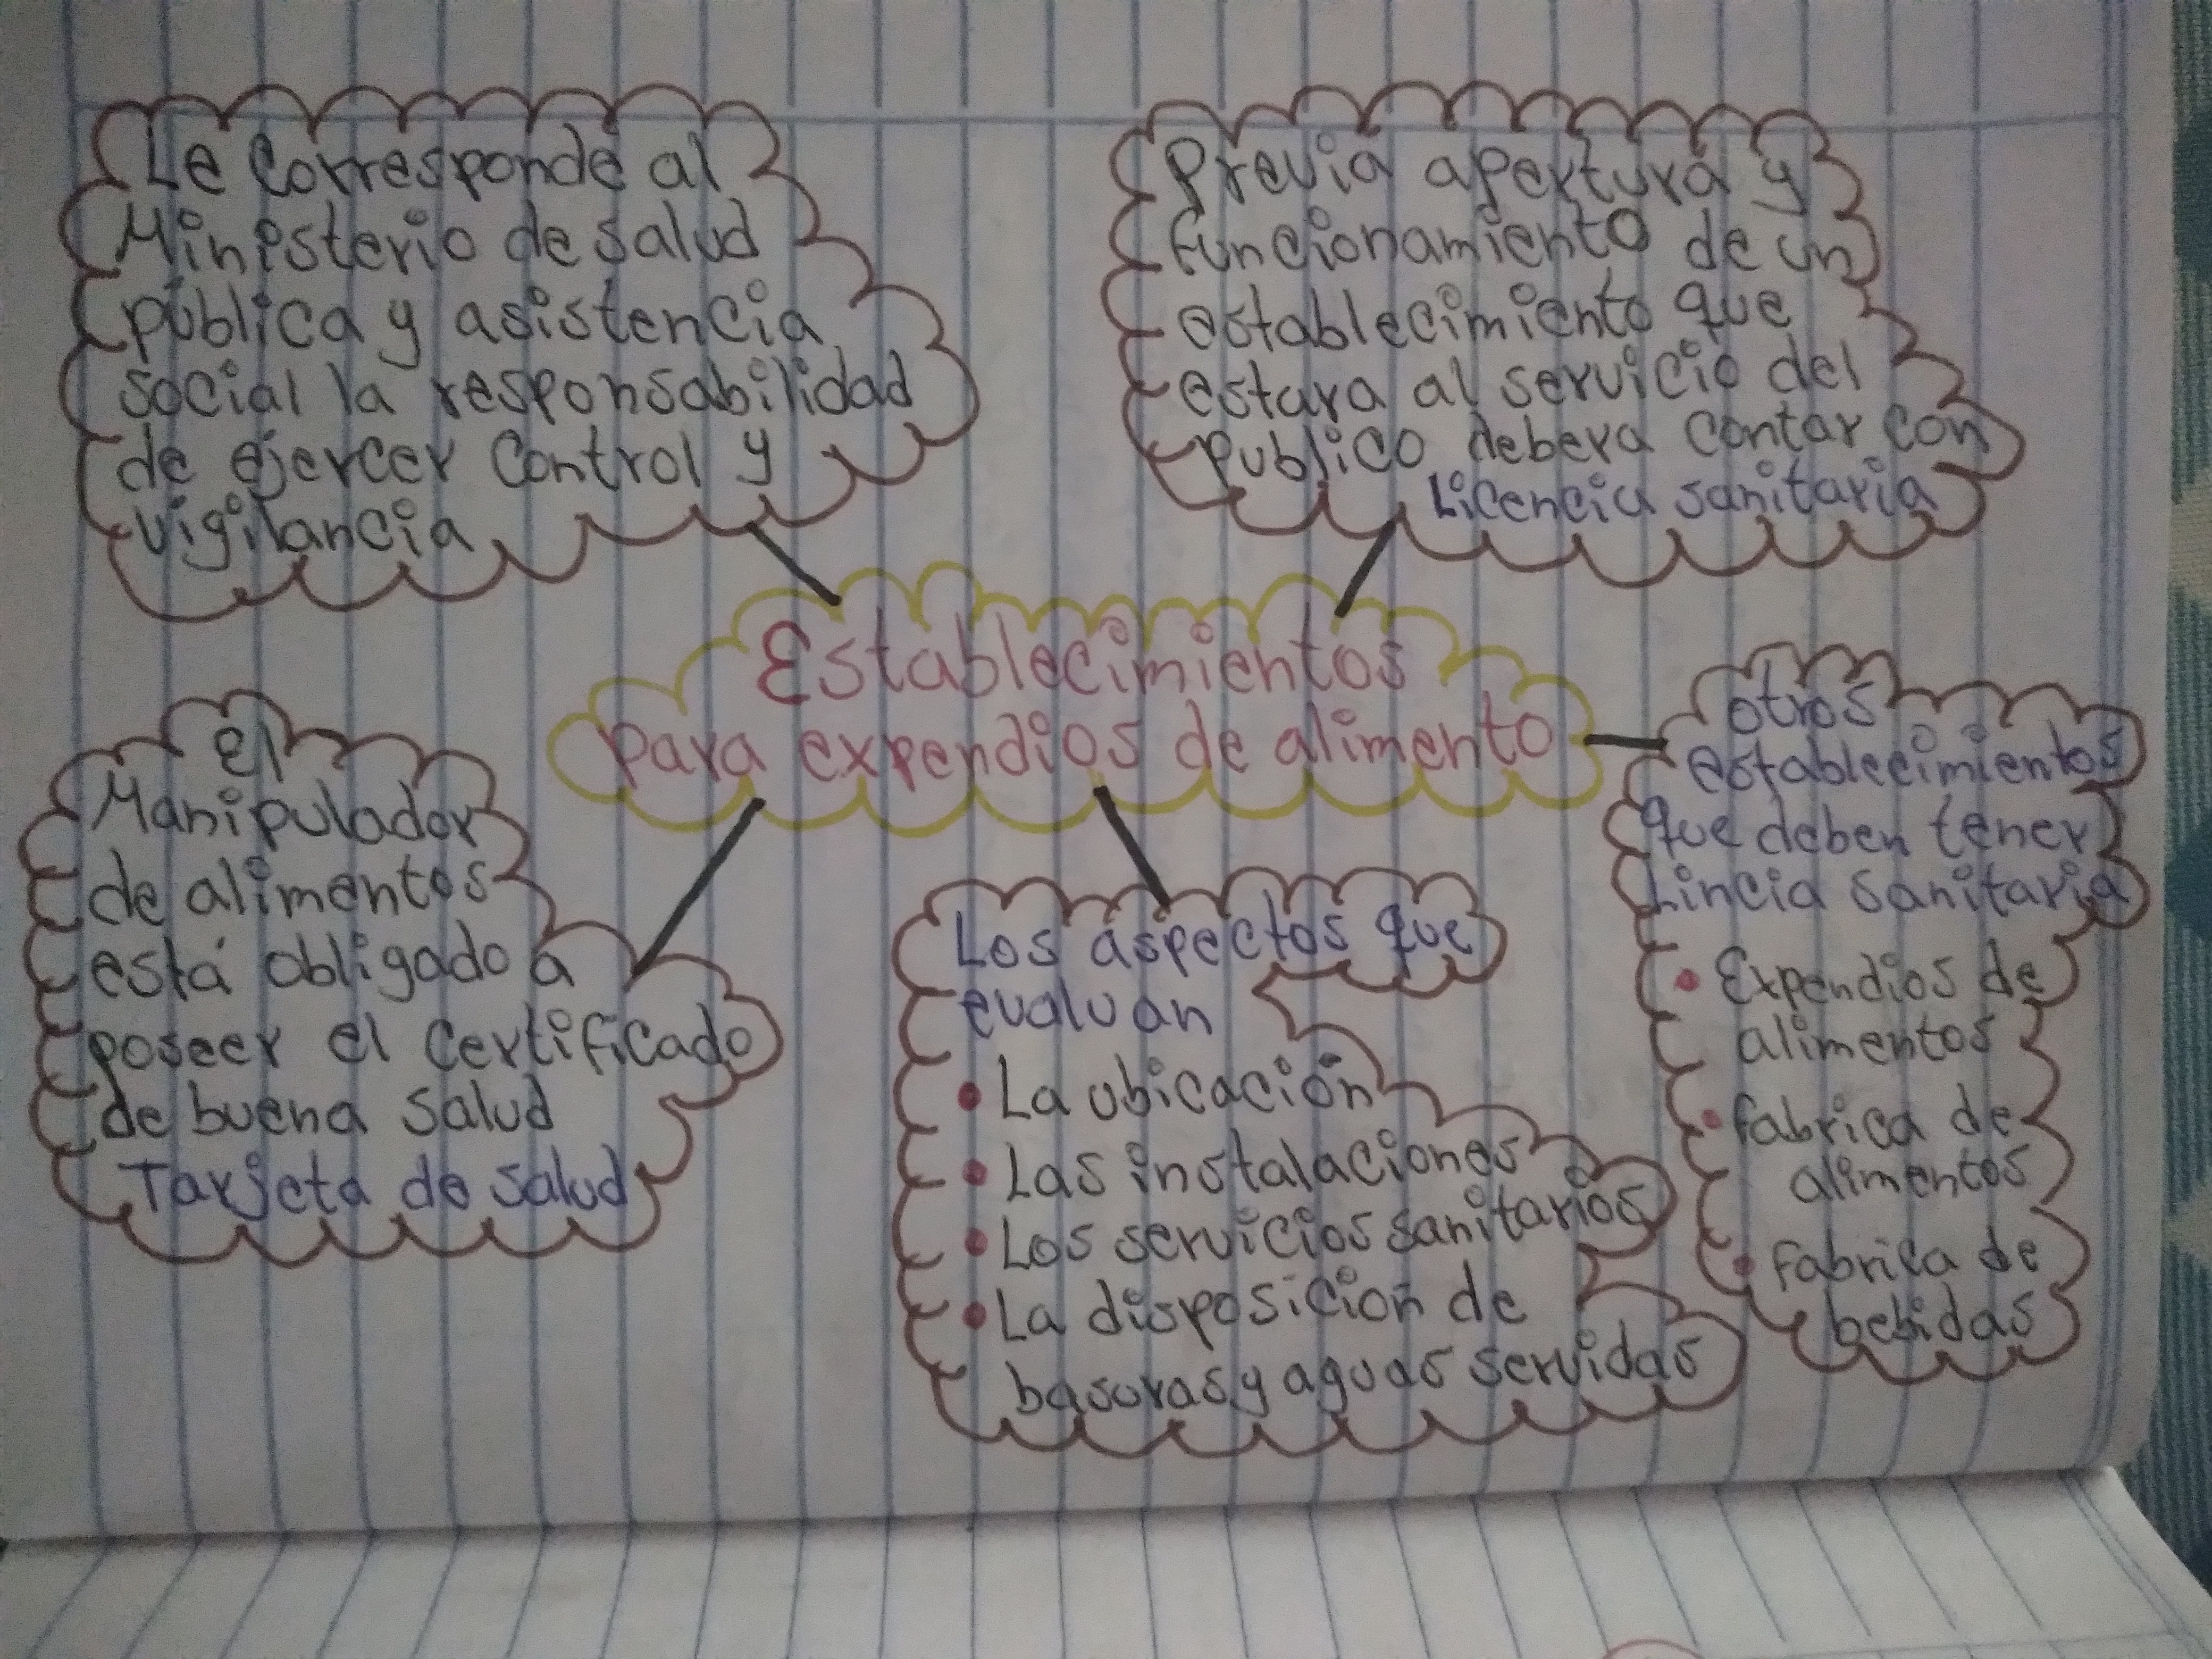 Le Corresponde al
Ministerio de salud
pública y asistencia
social la responsabilidad
de ejercer Control y
vigilancia
Previa apertura y
funcionamiento de un
establecimiento que
estara al servicio del
publico debera contar con
Licencia sanitaria
Establecimientos
para expendios de alimento
el
Manipulador
de alimentos
está obligado a
poseer el Certificado
de buena salud
Tarjeta de salud
Los aspectos que
evaluan
• La ubicación
• Las instalaciones
• Los servicios sanitarios
• La disposición de
basuras y aguas servidas
otros
establecimientos
que deben tener
Lincia sanitaria
• Expendios de
alimentos
• fabrica de
alimentos
• fabrica de
bebidas